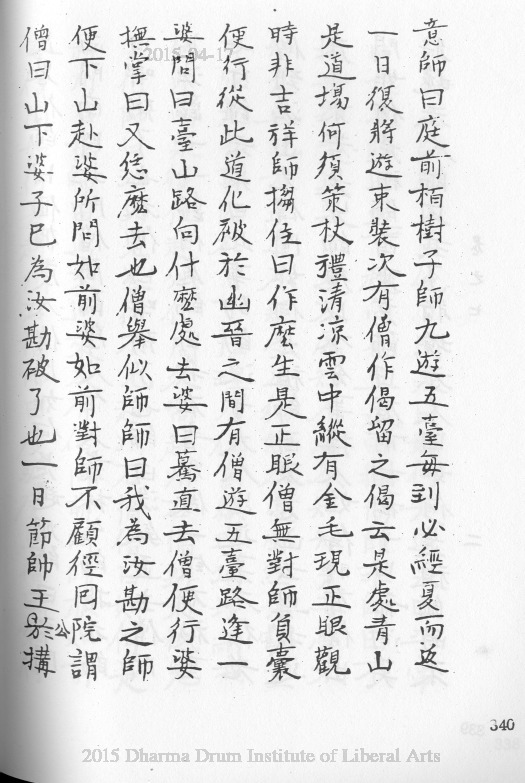 意師曰庭前栢樹子師九遊五臺每到必經夏而返
一日復將遊束裝次有僧作偈留之偈云是處青山
是道場何須策杖禮清凉雲中縱有金毛現正眼觀
時非吉祥師搊住曰作麽生是正眼僧無對師負囊
便行從此道化被於幽晉之間有僧遊五臺路逢一
婆問曰臺山路向什麽處去婆曰驀直去僧便行婆
撫掌曰又恁麽去也僧舉似師師曰我為汝勘之師
便下山赴婆所問如前婆如前對師不顧徑囘院謂
僧曰山下婆子已為汝勘破了也一日節帥王公
340
2015-04-17
2015 Dharma Drum Institute of Liberal Arts